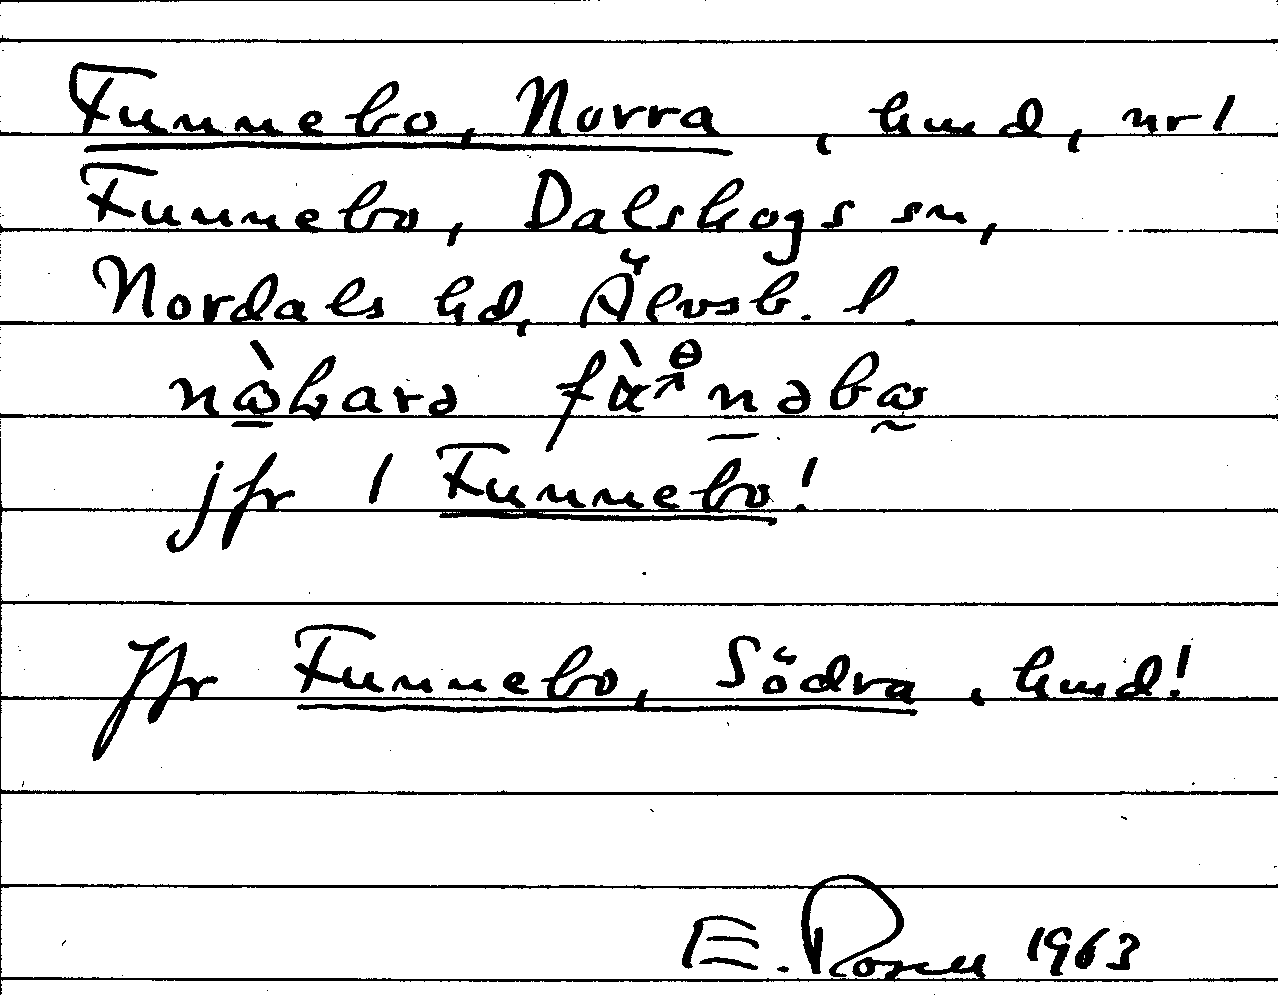 Funnebo, Norra, hmd, nr 1
Funnebo, Dalskogs sn,
Nordals hd, Älvsb. l.
jfr 1 Funnebo!
Jfr Funnebo, Södra, hmd!
E. Rosell 1963